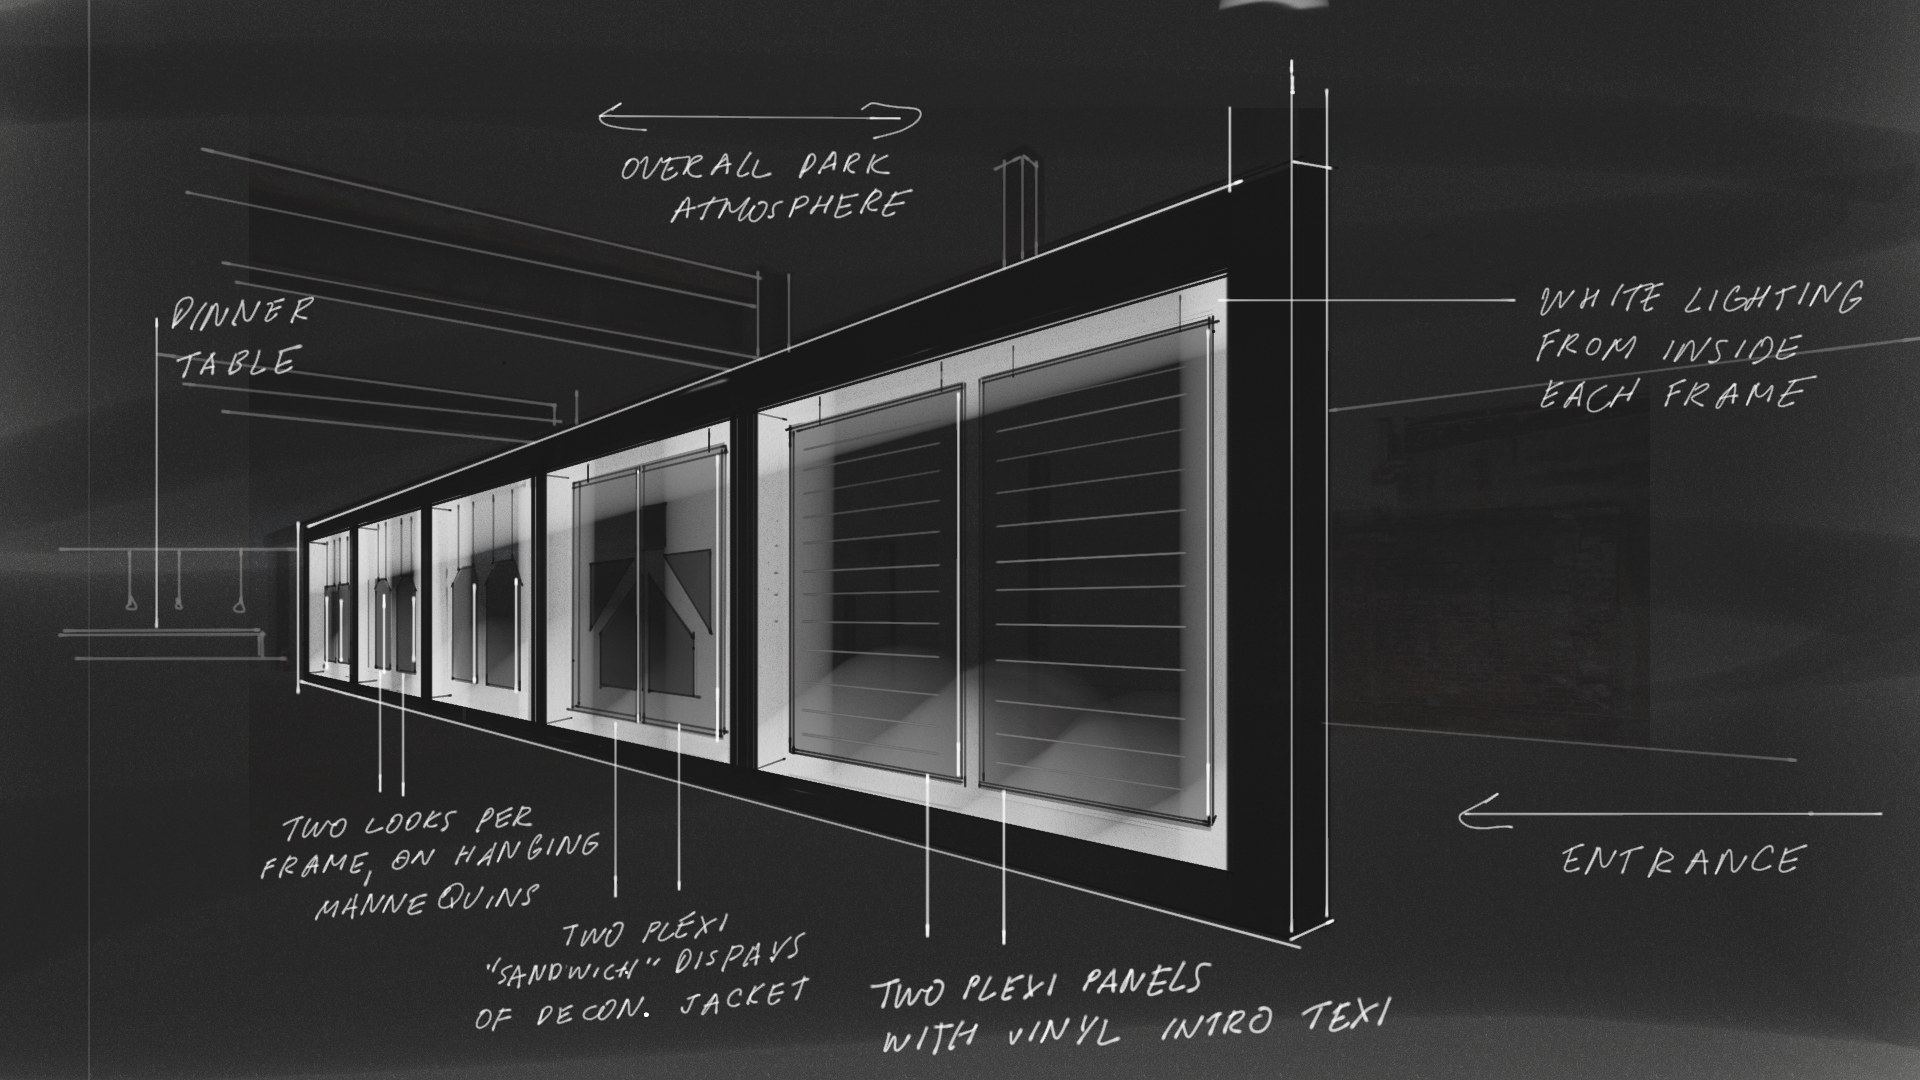 OVERALL DARK
ATMOSPHERE
DINNER
TABLE
WHITE LIGHTING
FROM INSIDE
EACH FRAME
ENTRANCE
TWO LOOKS PER
FRAME, ON HANGING
MANNEQUINS
TWO PLEXI
"SANDWICH" DISPAYS
OF DECON. JACKET
TWO PLEXI PANELS
WITH VINYL INTRO TEXT